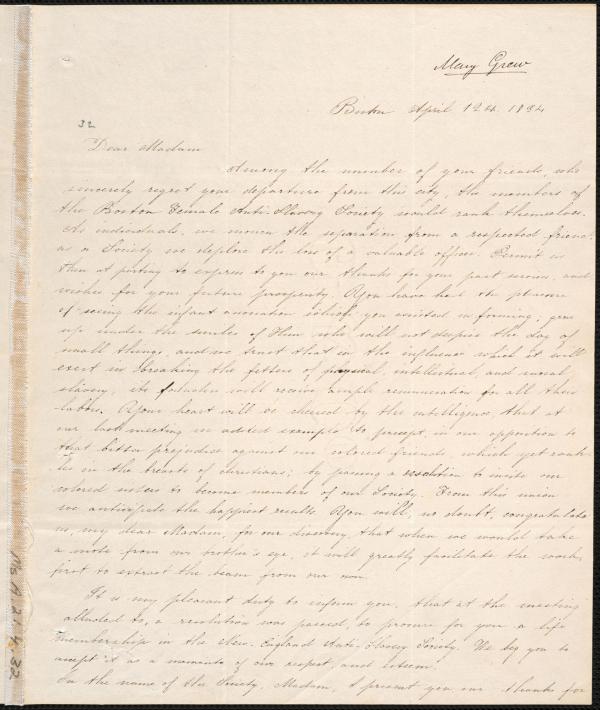 Mary Grew
Boston April 12th. 1834
32
Dear Madam
Among the number of your friends, who
sincerely regret your departure from this city, the members of
the Boston Female Anti-Slavery Society would rank themselves.
As individuals, we mourn the separation from a respected friend;
as a Society we deplore the loss of a valuable officer. Permit us
then at parting to express to you our thanks for your past services, and
wishes for your future prosperity. You have had the pleasure
of seeing the infant association which you assisted in forming, grow
up under the smiles of Him who will not despise the day of
small things, and we trust that in the influence which it will
exert in breaking the fetters of physical, intellectual, and moral
slavery, its founders will receive ample remuneration for all their
labors. Your heart will be cheered by the intelligence, that at
our last meeting we added example to precept, in our opposition to
that bitter prejudice against our colored friends, which yet rank-
les in the breasts of christians; by passing a resolution to invite our
colored sisters to become members of our Society. From this union
we anticipate the happiest results. You will, no doubt, congratulate
us, my dear Madam, for our discovery, that when we would take
a mote from our brother's eye, it will greatly facilitate the work,
first to extract the beam from our own.
It is my pleasant duty to inform you, that at the meeting
alluded to, a resolution was passed, to procure for you a life
membership in the New-England Anti-Slavery Society. We beg you to
accept it as a memento of our respect, and esteem.
In the name of the Society, Madam, I present you our thanks for
Ms.A.2.1.4.32